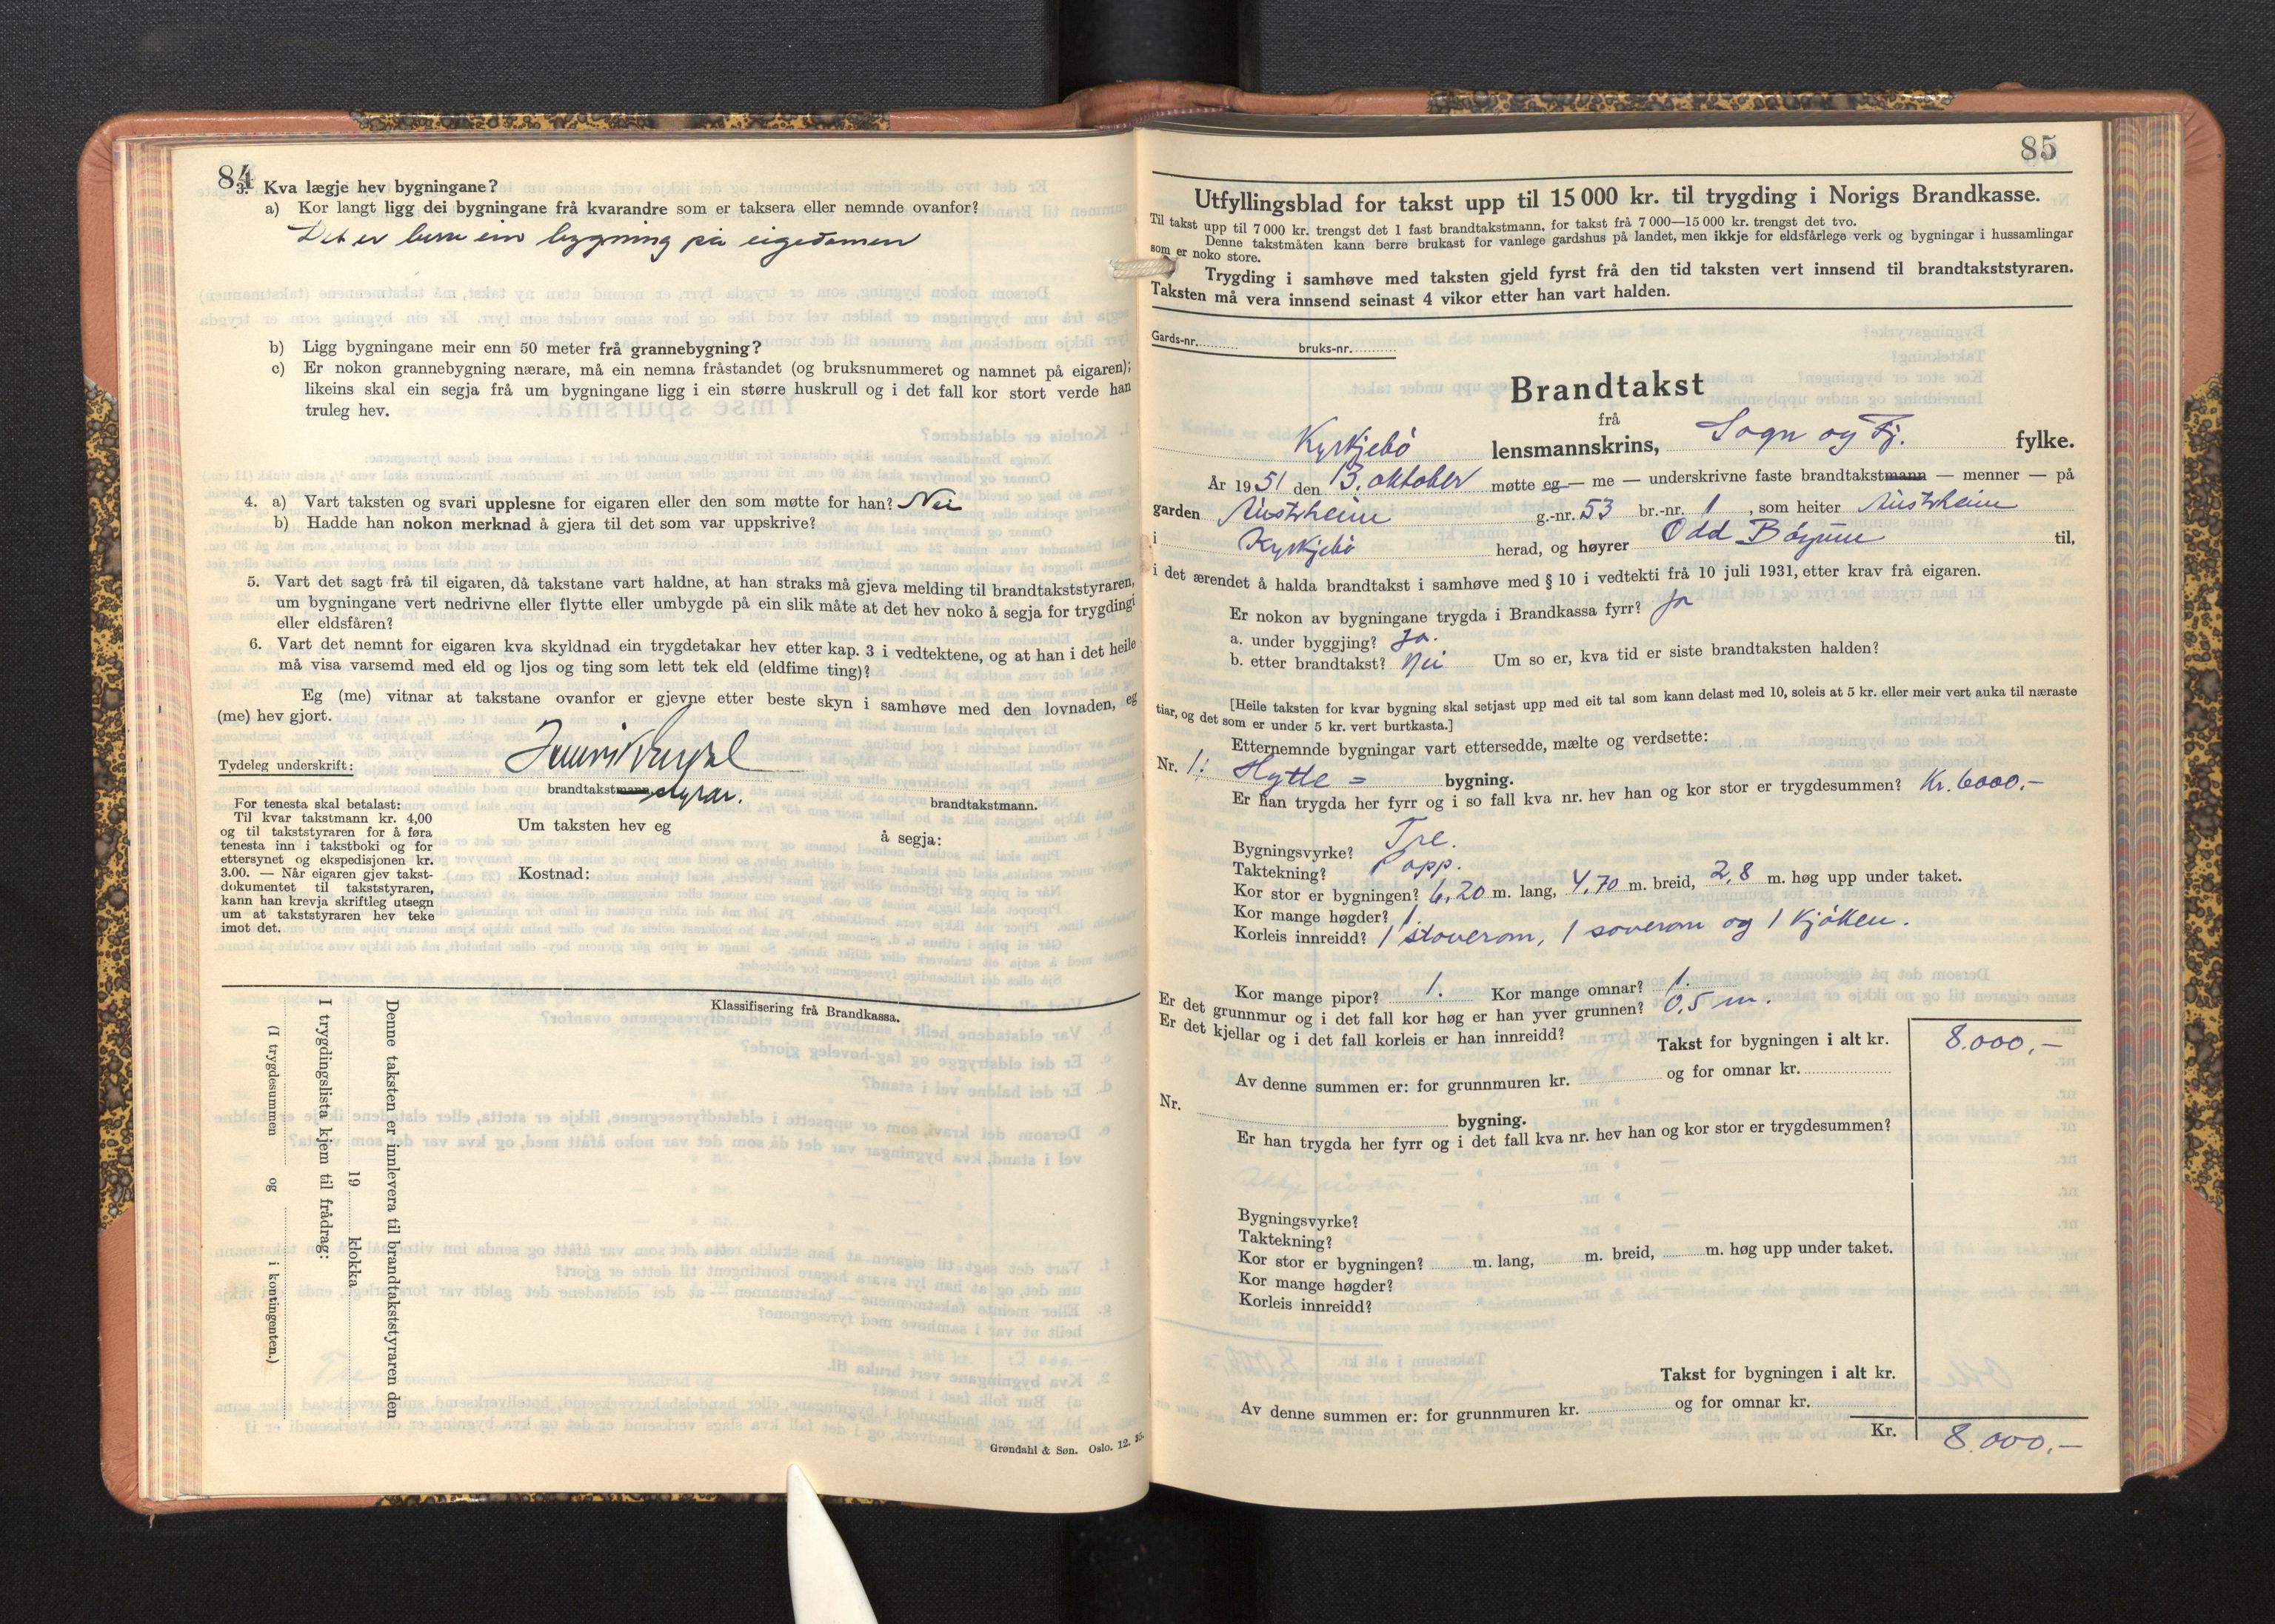 84
3. Kva lægje hev bygningane?
a) Kor langt ligg dei bygningane frå kvarandre som er taksera eller nemnde ovanfor?
Det er berre ein bygning på eigedomen
b) Ligg bygningane meir enn 50 meter frå grannebygning?
c) Er nokon grannebygning nærare, må ein nemna fråstandet (og bruksnummeret og namnet på eigaren);
likeins skal ein segja frå um bygningane ligg i ein større huskrull og i det fall kor stort verde han
truleg hev.
4. a) Vart taksten og svari upplesne for eigaren eller den som møtte for han? Nei
b) Hadde han nokon merknad å gjera til det som var uppskrive?
5. Vart det sagt frå til eigaren, då takstane vart haldne, at han straks må gjeva melding til brandtakststyraren,
um bygningane vert nedrivne eller flytte eller umbygde på ein slik måte at det hev noko å segja for trygdingi
eller eldsfåren?
6. Vart det nemnt for eigaren kva skyldnad ein trygdetakar hev etter kap. 3 i vedtektene, og at han i det heile
må visa varsemd med eld og ljos og ting som lett tek eld (eldfime ting)?
Eg (me) vitnar at takstane ovanfor er gjevne etter beste skyn i samhøve med den lovnaden, eg
(me) hev gjort.
Tydeleg underskrift:
brandtakstmann styrar.
brandtakstmann.
For tenesta skal betalast:
Til kvar takstmann kr. 4,00
og til takststyraren for å føra
tenesta inn i takstboki og for
ettersynet og ekspedisjonen kr.
3.00. — Når eigaren gjev takst-
dokumentet til takststyraren,
kann han krevja skriftleg utsegn
um at takststyraren hev teke
imot det.
Um taksten hev eg å segja:
Kostnad:
Klassifisering frå Brandkassa.
Denne taksten er innlevera til brandtakststyraren den
19 klokka
I trygdingslista kjem til frådrag:
(I trygdesummen og i kontingenten.)
Grøndahl & Søn. Oslo. 12. 35.
85
Utfyllingsblad for takst upp til 15 000 kr. til trygding i Norigs Brandkasse.
Til takst upp til 7 000 kr. trengst det 1 fast brandtakstmann, for takst frå 7 000—15 000 kr. trengst det tvo.
Denne takstmåten kann berre brukast for vanlege gardshus på landet, men ikkje for eldsfårlege verk og bygningar i hussamlingar
som er noko store.
Trygding i samhøve med taksten gjeld fyrst frå den tid taksten vert innsend til brandtakststyraren.
Taksten må vera innsend seinast 4 vikor etter han vart halden.
Gards-nr. bruks-nr.
Brandtakst
frå
Kyrkjebø lensmannskrins, Sogn og Fj. fylke.
År 1951 den 13. oktober møtte eg — me — underskrivne faste brandtakstmann — menner — på
garden Austrheim g.-nr. 53 br.-nr. 1, som heiter Austrheim
i Kyrkjebø herad, og høyrer Odd Børum til,
i det ærendet å halda brandtakst i samhøve med § 10 i vedtekti frå 10 juli 1931, etter krav frå eigaren.
Er nokon av bygningane trygda i Brandkassa fyrr? Ja
a. under byggjing? Ja.
b. etter brandtakst? Nei Um so er, kva tid er siste brandtaksten halden?
[Heile taksten for kvar bygning skal setjast upp med eit tal som kann delast med 10, soleis at 5 kr. eller meir vert auka til næraste
tiar, og det som er under 5 kr. vert burtkasta.]
Etternemnde bygningar vart ettersedde, mælte og verdsette:
Nr. 1: Hytte = bygning.
Er han trygda her fyrr og i so fall kva nr. hev han og kor stor er trygdesummen? Kr. 6000.-
Bygningsvyrke? Tre.
Taktekning? Papp.
Kor stor er bygningen? 6,20 m. lang, 4,70 m. breid, 2,8 m. høg upp under taket.
Kor mange høgder? 1.
Korleis innreidd? 1 stoverom, 1 soverom og 1 kjøkken.
Kor mange pipor? 1. Kor mange omnar? 1.
Er det grunnmur og i det fall kor høg er han yver grunnen? 0,5 m.
Er det kjellar og i det fall korleis er han innreidd?
Takst for bygningen i alt kr. 8.000,-
Av denne summen er: for grunnmuren kr. og for omnar kr.
Nr. bygning.
Er han trygda her fyrr og i det fall kva nr. hev han og kor stor er trygdesummen?
Bygningsvyrke?
Taktekning?
Kor stor er bygningen? m. lang, m. breid, m. høg upp under taket.
Kor mange høgder?
Korleis innreidd?
Takst for bygningen i alt kr.
Av denne summen er: for grunnmuren kr. og for omnar kr.
Kr. 8.000,-